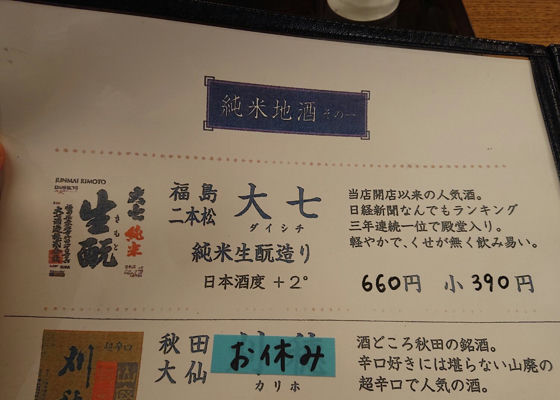 純米地酒 その一
JUNMAI KIMOTO
大七
純米
生酛
きもと
福島
二本松
大七
ダイシチ
純米生酛造り
日本酒度 +2°
当店開店以来の人気酒。
日経新聞なんでもランキング
三年連続一位で殿堂入り。
軽やかで、くせが無く飲み易い。
660円 小 390円
超辛口
秋田
大仙
お休み
カリホ
酒どころ秋田の銘酒。
辛口好きには堪らない山廃の
超辛口で人気の酒。